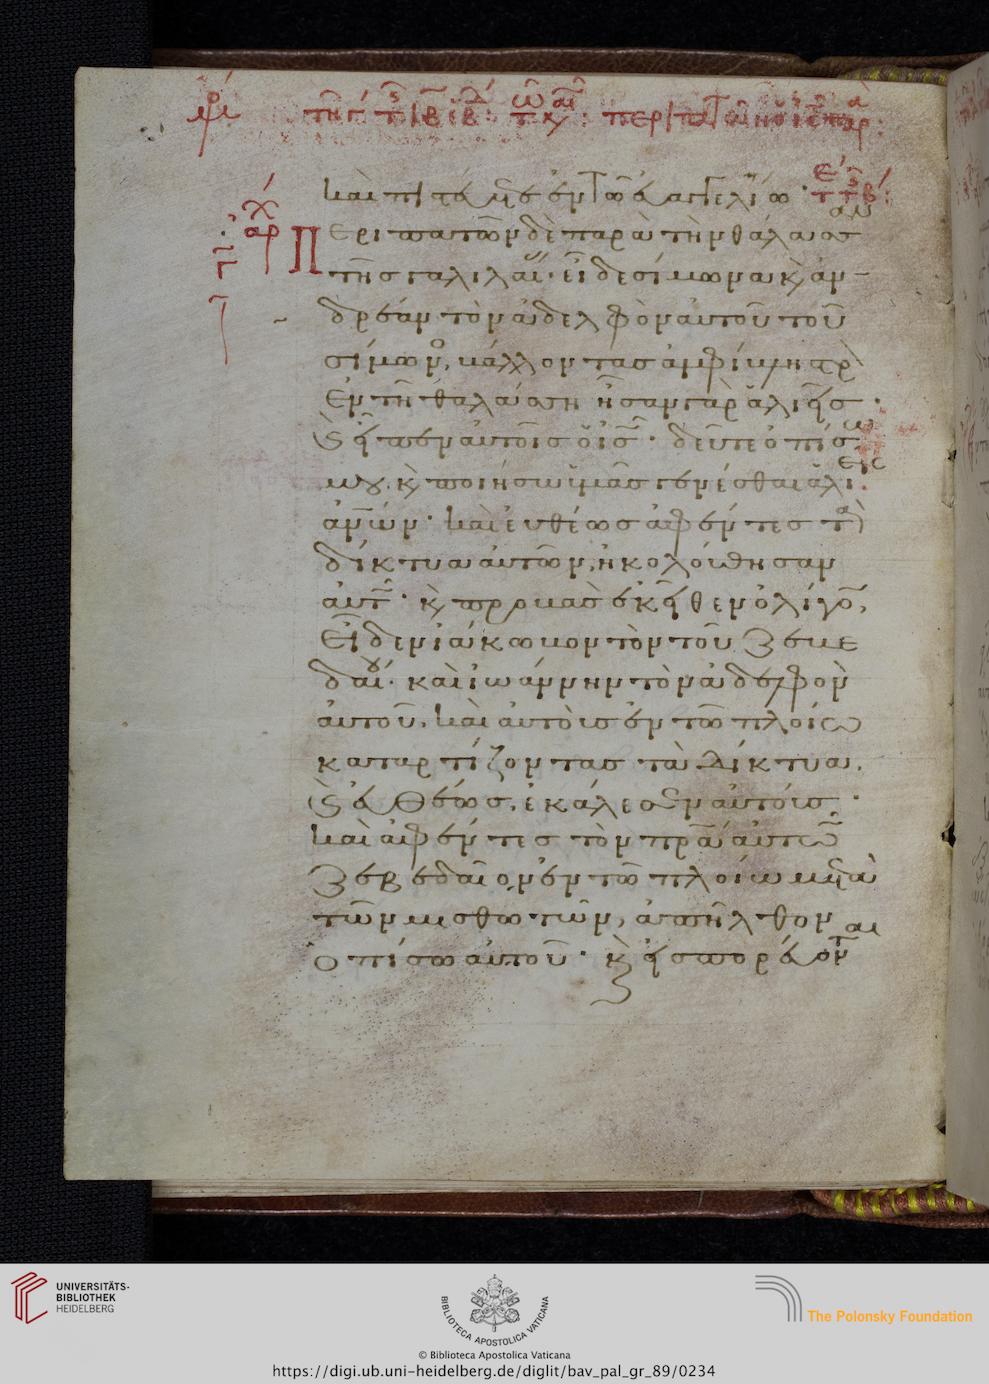 καὶ πιστεύετε ἐν τῶ εὐαγγελίω·
Περιπατῶν δὲ παρὰ τὴν θάλασσαν
τῆς γαλιλαίας· εἶδε σίμωνα κ ἀν-
δρέαν τὸν ἀδελφὸν αὐτοῦ τοῦ
σίμωνος, βάλλοντας ἀμφίβληστρον
ἐν τῆ θαλάσση ἦσαν γὰρ ἁλιεῖς·
καὶ εἶπεν αὐτοῖς ὁ ἰς· δεῦτε ὀπίσω
μου, κ ποιήσω ὑμᾶς γενέσθαι ἁλιεῖς
ἀνων· καὶ εὐθέως ἀφέντες τὰ
δίκτυα αὐτῶν, ἠκολούθησαν
αὐτῶ· κ προβὰς ἐκεῖθεν ὀλίγον,
εἶδεν ἰάκωβον τὸν τοῦ ζεβε
δαίου· καὶ ἰωάννην τὸν ἀδελφὸν
αὐτοῦ, καὶ αὐτοὺς ἐν τῶ πλοίω
καταρτίζοντας τὰ δίκτυα,
καὶ εὐθέως, ἐκάλεσεν αὐτούς·
καὶ ἀφέντες τὸν πρα αὐτῶν
ζεβεδαῖον ἐν τῶ πλοίω μετὰ
τῶν μισθωτῶν, ἀπῆλθον
ὀπίσω αὐτοῦ· κ εἰσπορεύονται
UNIVERSITÄTS-
BIBLIOTHEK
HEIDELBERG
BIBLIOTECA APOSTOLICA VATICANA
© Biblioteca Apostolica Vaticana
https://digi.ub.uni-heidelberg.de/diglit/bav_pal_gr_89/0234
The Polonsky Foundation